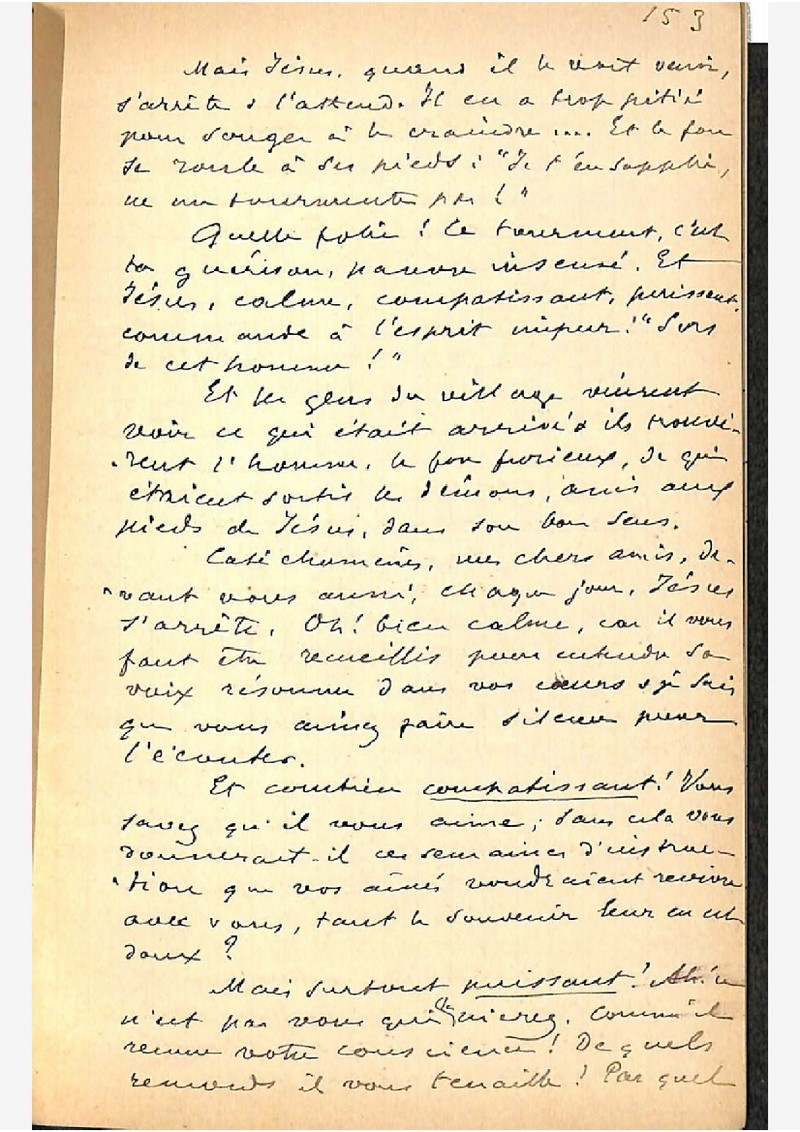 153
Mais Jésus, quand il le voit venir,
s'arrête & l'attend. Il en a trop pitié
pour songer à le craindre .... Et le fou
se roule à ses pieds : "Je t'en supplie,
ne me tourmente pas !"
Quelle folie ! Ce tourment, c'est
ta guérison, pauvre insensé. Et
Jésus, calme, compatissant, puissant,
commande à l'esprit impur : "Sors
de cet homme !"
Et les gens du village vinrent
voir ce qui était arrivé & ils trouvè-
rent l'homme, le fou furieux, de qui
étaient sortis les démons, assis aux
pieds de Jésus, dans son bon sens.
Catéchumènes, mes chers amis, de-
vant vous aussi, chaque jour, Jésus
s'arrête. Oh! bien calme, car il vous
faut être recueillis pour entendre sa
voix résonner dans vos cœurs & je sais
que vous aimez faire silence pour
l'écouter.
Et combien compatissant ! Vous
savez qu'il vous aime ; sans cela vous
donnerait-il ces semaines d'instruc-
tion que vos aînés voudraient revivre
avec vous, tant le souvenir leur en est
doux ?
Mais surtout puissant ! Ah! ce
n'est pas vous qui le nierez. Comme il
remue votre conscience ! De quels
remords il vous tenaille ! Par quel